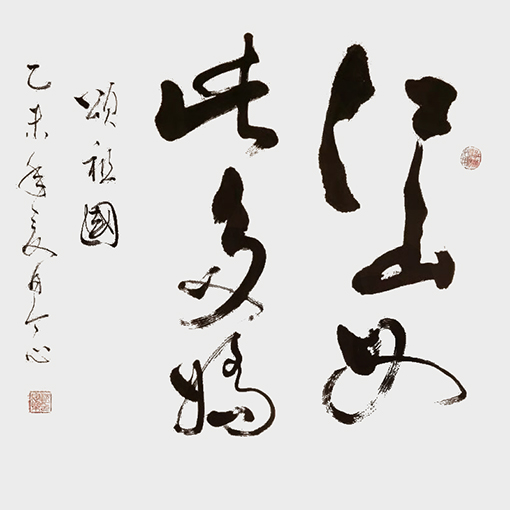 江山如
此多嬌
頌祖國
乙未年夏月